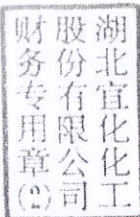 湖北宜化化工
股份有限公司
财务专用章(2)